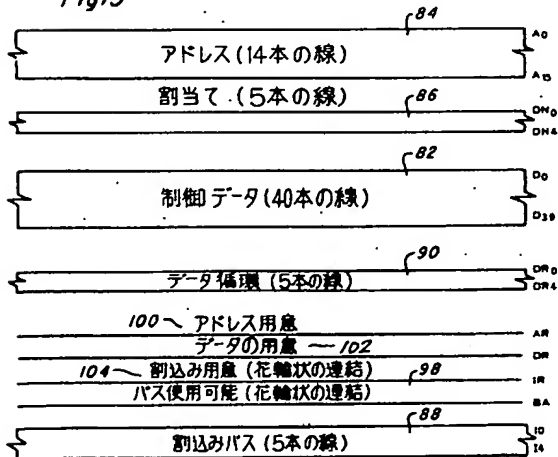 Fig15
84
アドレス(14本の線)
A0
A15
割当て.(5本の線)
86
DN0
DN4
82
制御データ(40本の線)
D0
D39
90
データ循環(5本の線)
DR0
DR4
100 アドレス用意
AR
データの用意 102
DR
104 割込み用意(花輪状の連結)
98
IR
バス使用可能(花輪状の連結)
BA
88
割込みバス(5本の線)
I0
I4